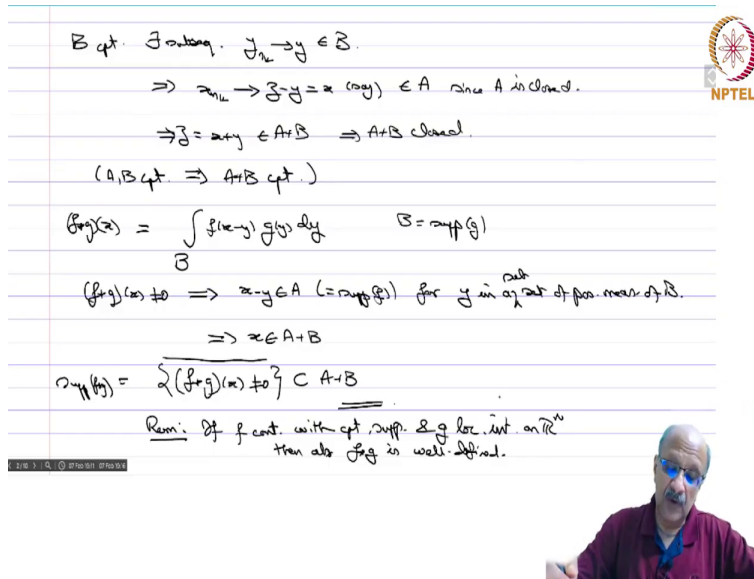 B cpt. ∃ subseq. y_{n_k} → y ∈ B.
⇒ x_{n_k} → ζ-y = x (say) ∈ A since A is closed.
⇒ ζ = x+y ∈ A+B ⇒ A+B closed.
(A, B cpt. ⇒ A+B cpt.)
(f*g)(x) = ∫_B f(x-y) g(y) dy B = supp(g)
(f*g)(x) ≠ 0 ⇒ x-y ∈ A (= supp(f)) for y in a set of pos. meas. of B.
⇒ x ∈ A+B
supp(f*g) = \overline{{(f*g)(x) ≠ 0}} ⊂ A+B
Rem: If f cont. with cpt. supp. & g loc. int. on ℝ^N
then also f*g is well-defined.
NPTEL
2/10 07 Feb 15:11 07 Feb 15:16